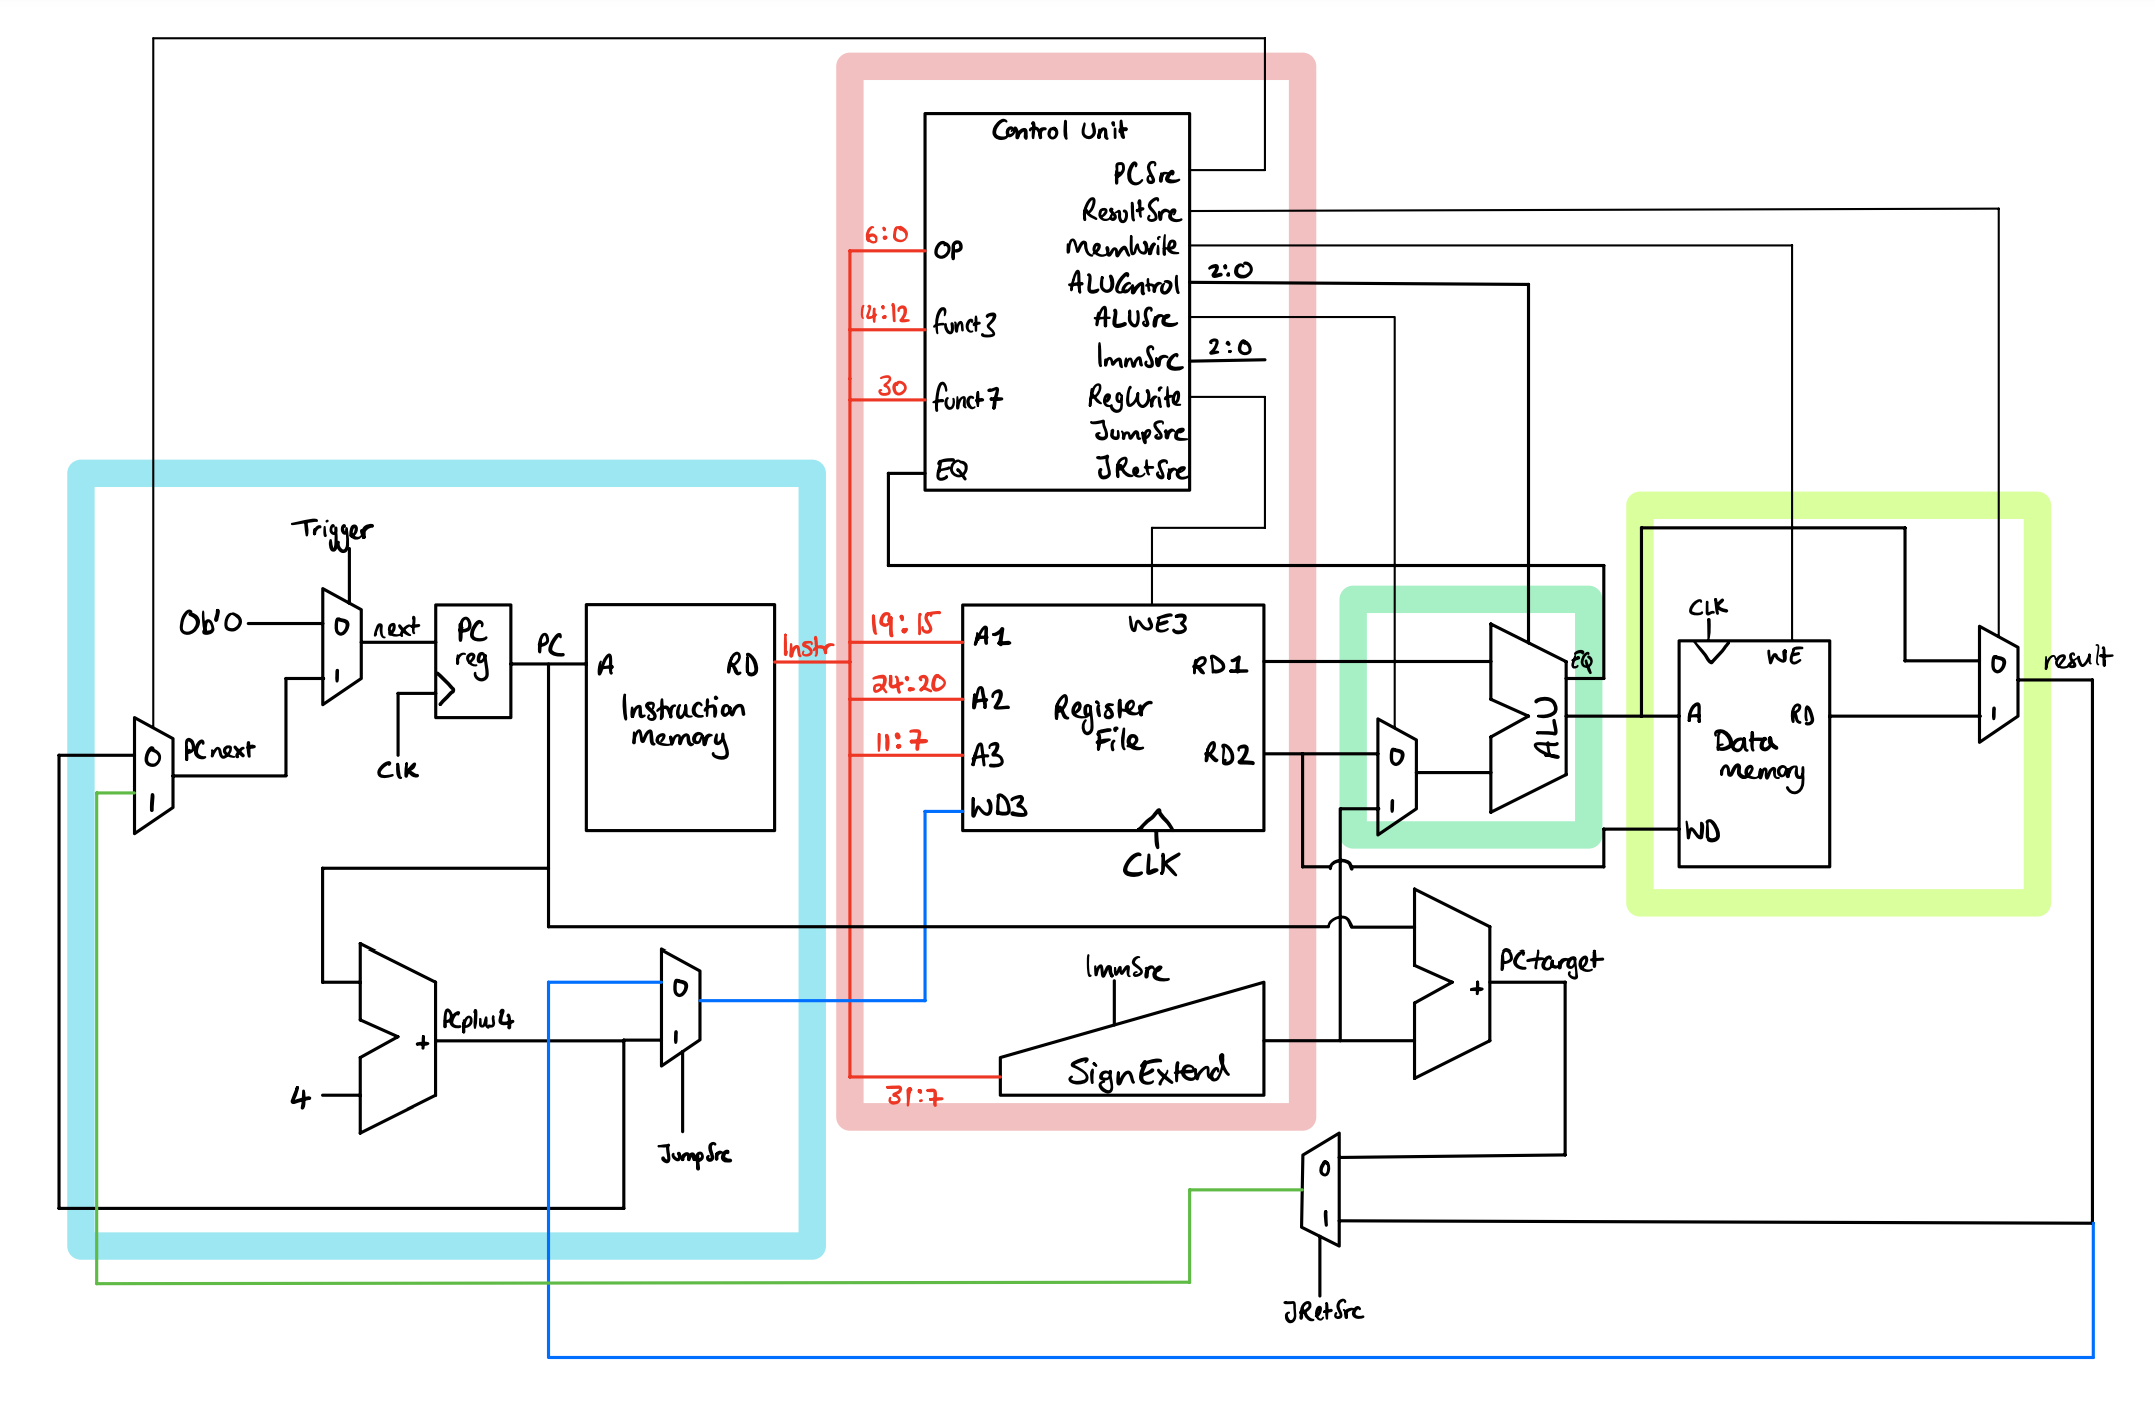 Control Unit
PCSrc
ResultSrc
MemWrite
ALUControl
2:0
ALUSrc
ImmSrc
2:0
RegWrite
JumpSrc
JRetSrc
6:0
OP
14:12
funct3
30
funct7
EQ
Trigger
0b'0
0
1
next
PC
reg
Clk
PC
A
RD
Instruction
Memory
Instr
0
1
PCnext
19:15
A1
24:20
A2
11:7
A3
WD3
WE3
RD1
Register
File
RD2
CLK
0
1
ALU
EQ
CLK
WE
A
RD
Data
Memory
WD
0
1
result
4
+
PCplus4
0
1
JumpSrc
ImmSrc
SignExtend
31:7
+
PCtarget
0
1
JRetSrc